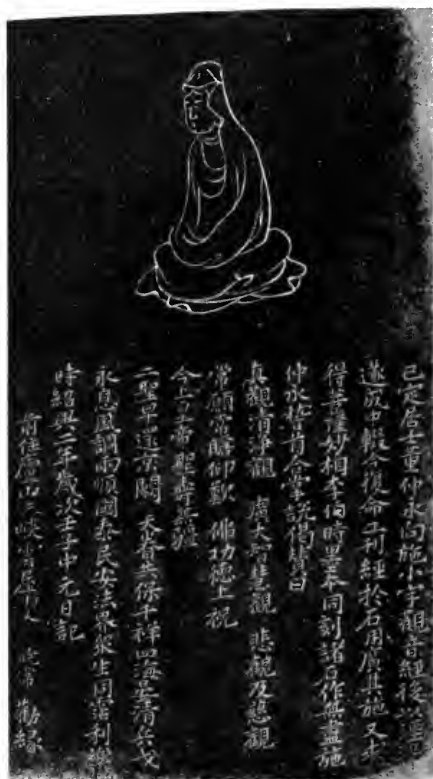 已定居士董仲永向施小字觀音經後以
遂沉中輟今復命工刊經於石用廣其施又
得菩薩妙相李伯時畫本同刻諸石作無盡施
仲永稽首合掌說偈贊曰
真觀清淨觀 廣大智慧觀 悲觀及慈觀
常願常瞻仰歎 佛功德上祝
今上皇帝聖壽無疆
二聖早還京闕 天眷共保千祥四海安清兵戈
永息風調雨順國泰民安法界衆生同霑利樂
時紹興二年歲次壬子中元日記
前住廬山三峽 勸緣